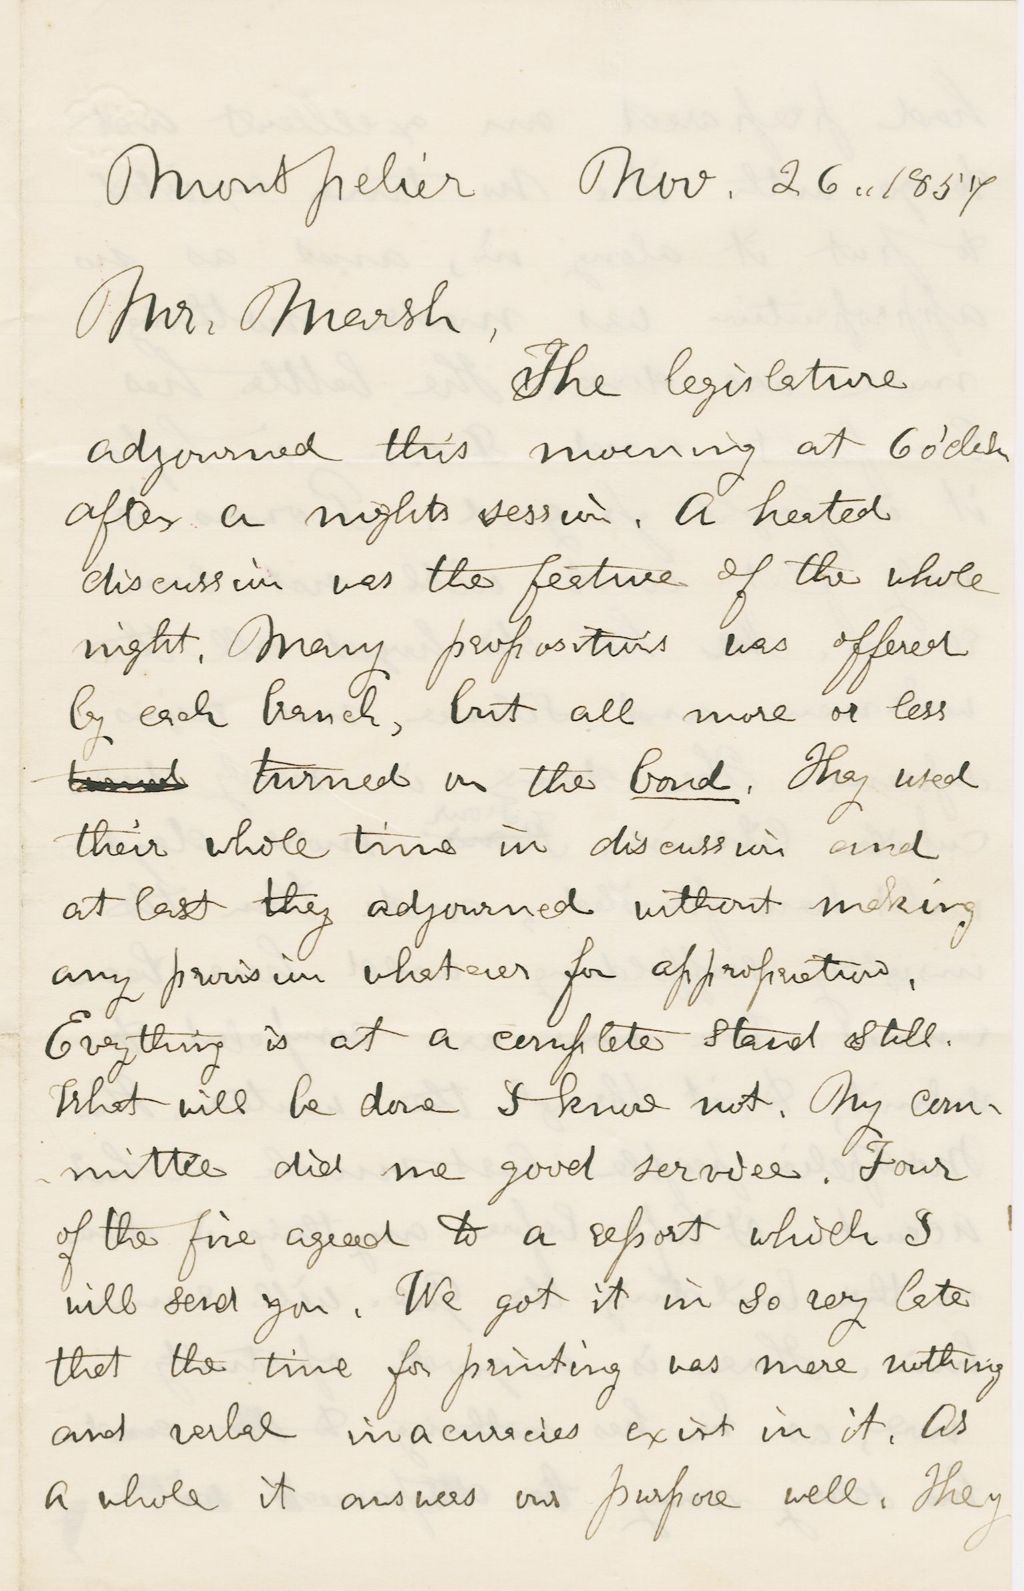 Montpelier Nov. 26 " 1857
Mr. Marsh,
The legislature
adjourned this morning at 6 o'clck
after a nights session. A heated
discussion was the feature of the whole
night. Many propositions was offered
by each branch, but all more or less
turned turned on the bond. They used
their whole time in discussion and
at last they adjourned without making
any provision whatever for appropriation.
Evything is at a complete stand still.
What will be done I know not. My com-
mittee did me good service. Four
of the five agreed to a report which I
will send you. We got it in so very late
that the time for printing was mere nothing
and verbal inacuracies exist in it. As
a whole it answers our purpose well. They